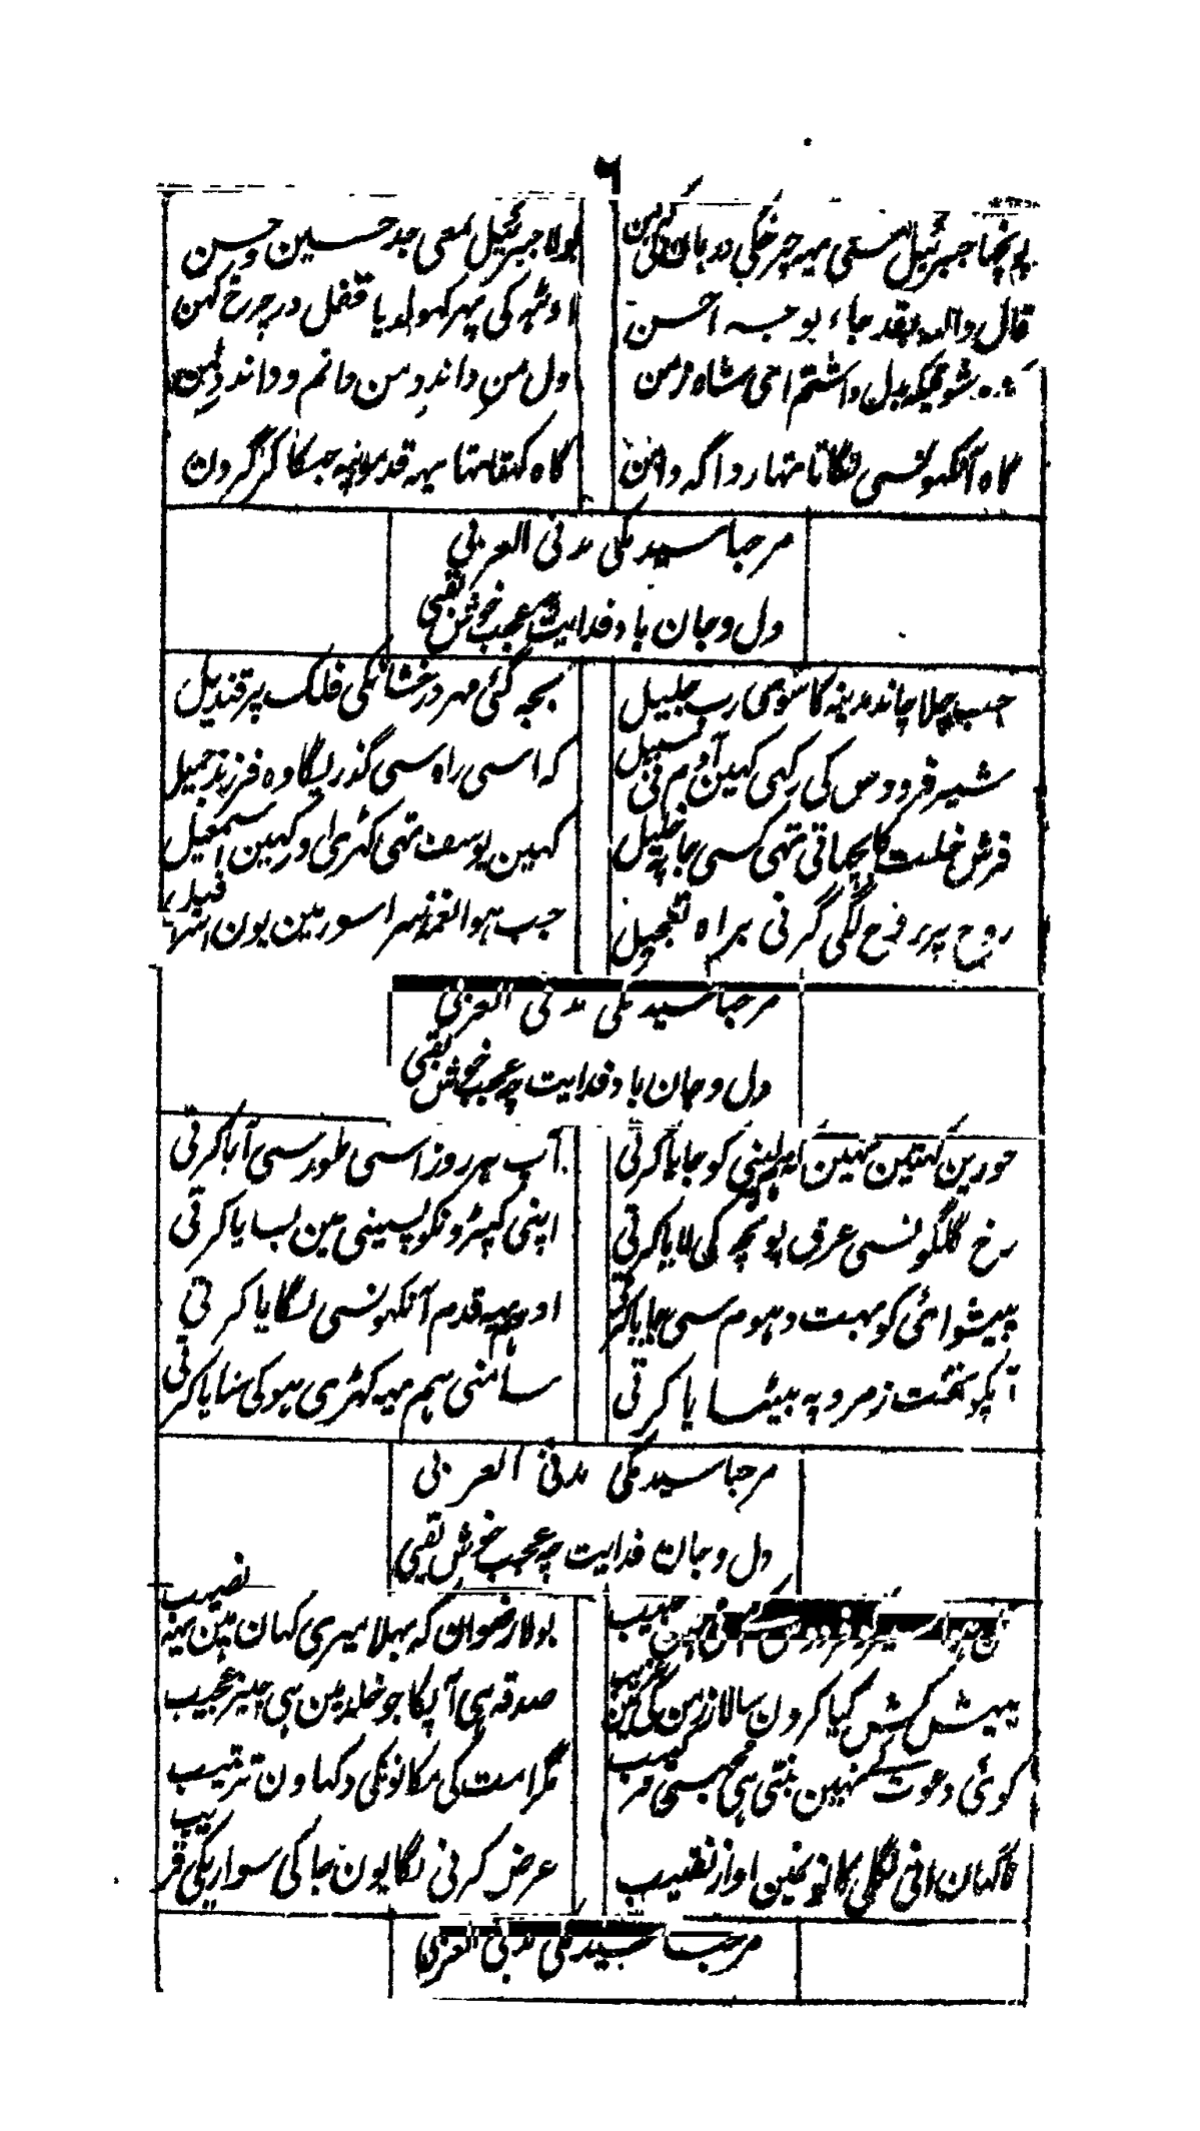 ٦
پونچھا جبرئیل سی یہہ چرخکی دربان نی کہ بن
بولا جبرئیل لمعی جد حسین و حسن
قال واللہ لقد جاء بوجہ احسن
اوٹہہ کی پہر کہولدیا قفل در چرخ کہن
شوقیکہ بدل داشتم ای شاہ زمن
دل من داند و من دانم و داند دل من
گاہ آنکہونسی لگاتا تہا ردا گہ دامن
گاہ کہتا تہا یہہ قدمونپہ جہکا کر گردن
مرحبا سید مکی مدنی العربی
دل و جان باد فدایت چہ عجب خوش لقبی
جب چلا چاند مدینہ کا سوی رب جلیل
بجہ گئی مہر درخشانکی فلک پر قندیل
شیر فردوس کی رکہی کہین آدم نی سبیل
کہ اسی راہ سی گذریگا وہ فرزند جمیل
فرش خلت کا بچہاتی تہی کسی جا پہ خلیل
کہین یوسف تہی کہڑی اور کہین اسمعیل
روح پرور خ لگی گرنی براہ تعجیل
جب ہوا نغمہ سرا سور مین یون
مرحبا سید مکی مدنی العربی
دل و جان باد فدایت چہ عجب خوش لقبی
حورین کہتین تہین لینی کو جایا کرتی
آپ ہر روز اسی طور سی آیا کرتی
رخ گلگونسی عرق پونچہ کی لایا کرتی
اپنی کپڑونکو پسینی مین بسایا کرتی
پیشوائی کو بہت دہوم سی جایا کرتی
اور ہم یہہ قدم آنکہونسی لگایا کرتی
آپکو تخت زمرد پہ بیٹہایا کرتی
سامنی ہم یہہ کہڑی ہو کی سنایا کرتی
مرحبا سید مکی مدنی العربی
دل و جان فدایت چہ عجب خوش لقبی
حبیب
بولا رضوان کہ بہلا میری کہان ہین یہہ نصیب
پیش کش کیا کرون سالار زمن کی مین غریب
صدقہ ہی آپکا جو خلد مین ہی چیز عجیب
کوئی دعوت کے نہین بنتی ہی مجہسی ترکیب
مگر امت کی مکانونکی دکہاون ترتیب
ناگہان انی لگی کانونمین اواز نقیب
عرض کرنی لگا یون جا کی سواریکی قریب
مرحبا سید مکی مدنی العربی